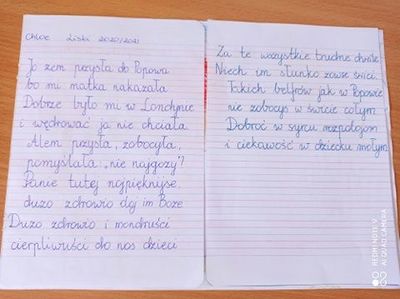 Chloe Liski 2020/2021
Jo żem przysła do Popowa
bo mi matka nakazała
Dobrze było mi w Londynie
i wędrować ja nie chciała
Alem przysła, zobocyła,
pomyślała: „nie najgozy"?
Panie tutej najpiękniyse,
duzo zdrowio dej im Boze
Duzo zdrowio i mondruści
cierpliwuści do nos dzieci
Za te wszystkie trudne chwile
Niech im słunko zawse świci.
Takich belfrów jak w Popowie
nie zobocys w świcie cołym.
Dobroć w syrcu rozpalajom
i ciekawość w dziecku małym.
REDMI NOTE 8
AI QUAD CAMERA